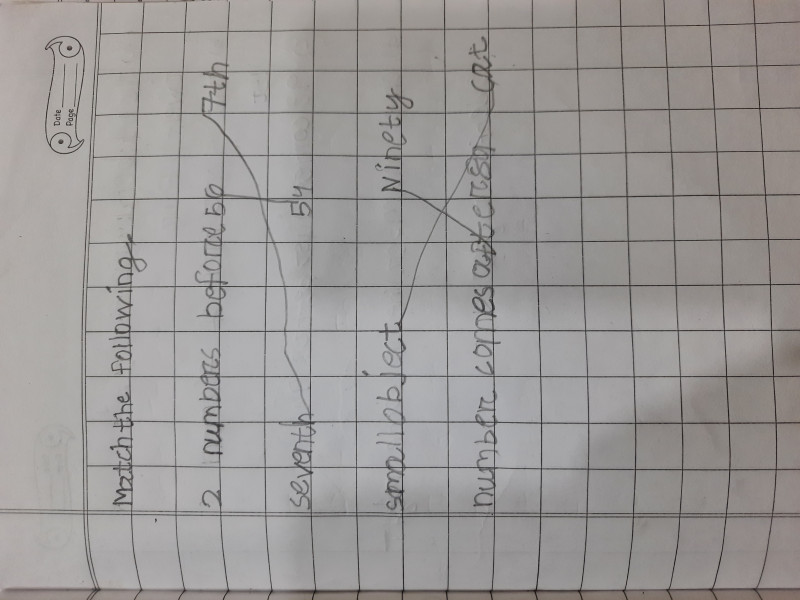 Date
Page
Match the following
2 numbers before 56 7th
seventh 54
small object Ninety
number comes after 89 cat